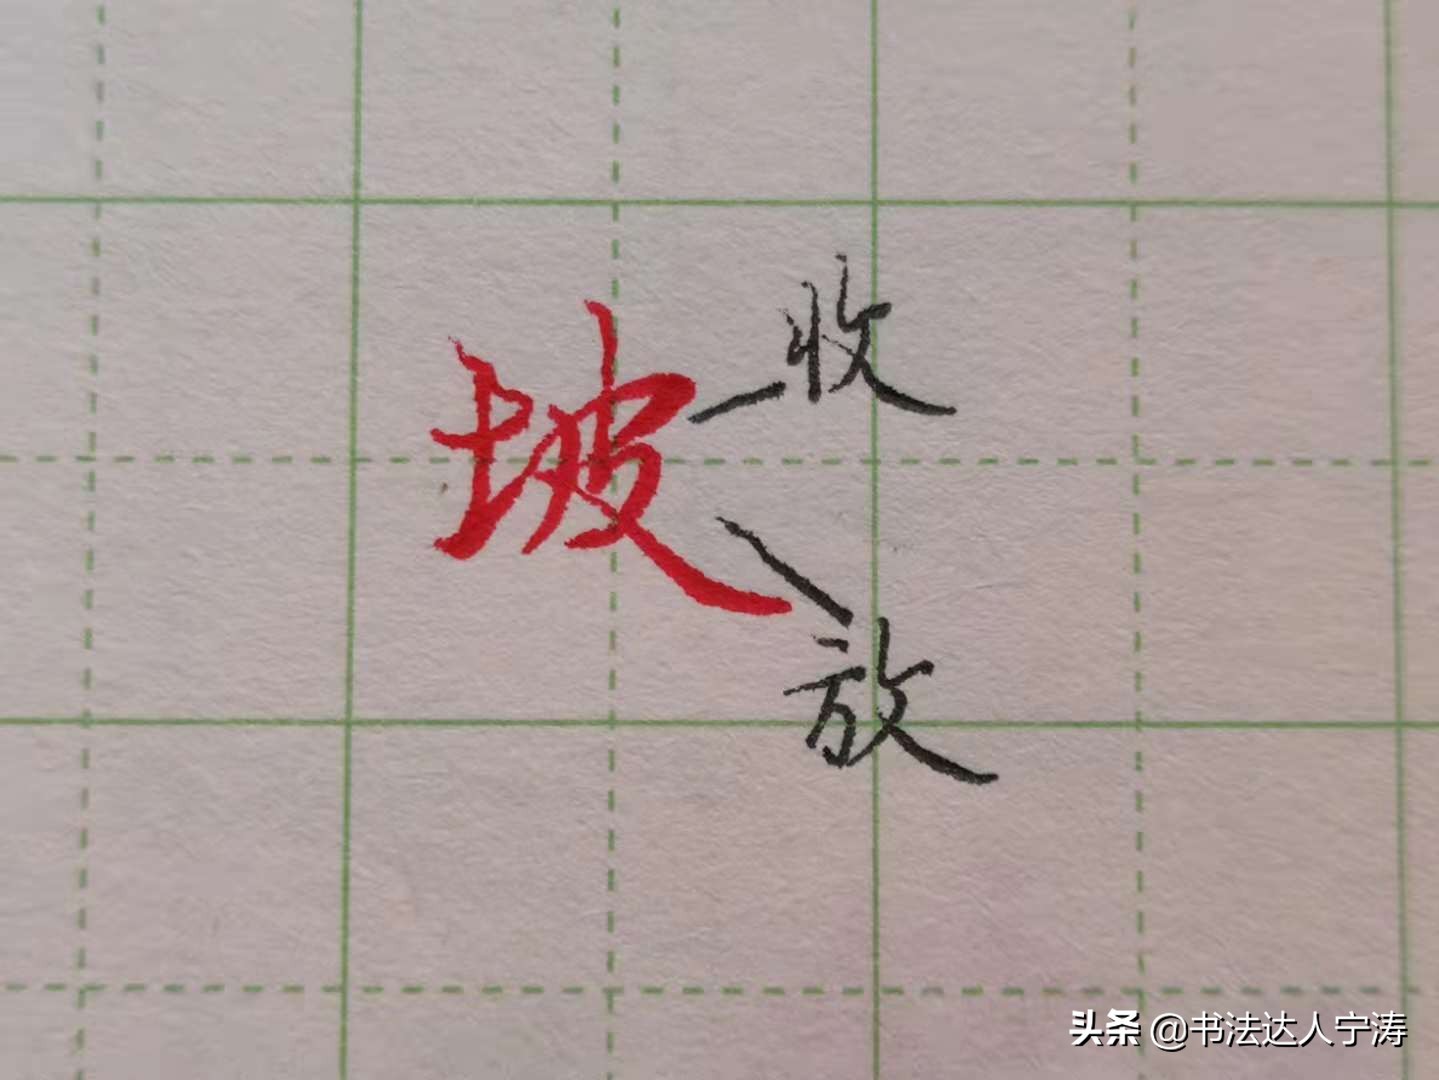 收
坡
放
头条 @书法达人宁涛